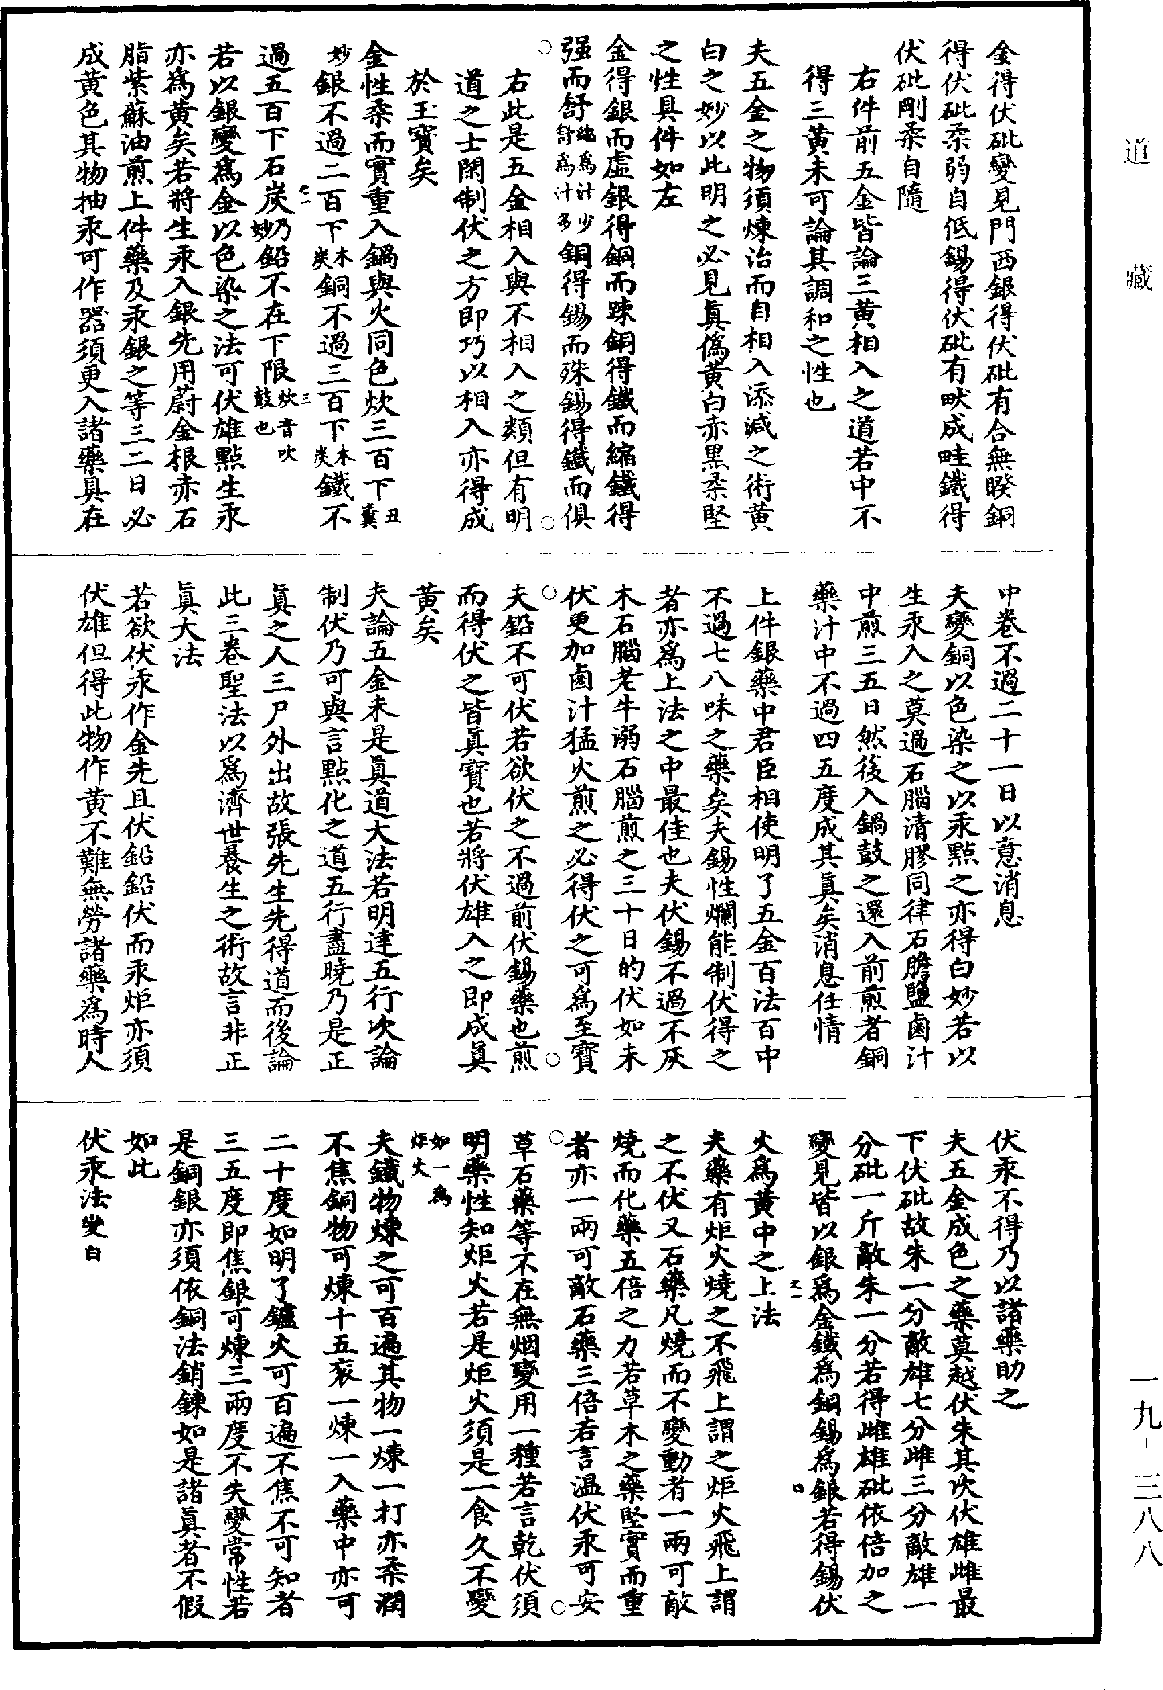 道藏
金得伏砒變見門西銀得伏砒有合無暌銅
得伏砒柔弱自低錫得伏砒有畎成畦鐵得
伏砒剛柔自隨
右件前五金皆論三黄相入之道若中不
得三黄未可論其調和之性也
夫五金之物須煉治而自相入添減之術黄
白之妙以此明之必見真僞黄白亦黑柔堅
之性具件如左
金得銀而虚銀得銅而踈銅得鐵而縮鐵得
强而舒縮爲計少舒爲計多銅得錫而殊錫得鐵而俱
右此是五金相入與不相入之類但有明
道之士閑制伏之方即巧以相入亦得成
於玉寳矣
金性柔而實重入鍋與火同色炊三百下丑糞
妙銀不過二百下木炭銅不過三百下木炭鐵不
過五百下石炭乃妙鉛不在下限炊音吹三鼓也
若以銀變爲金以色染之法可伏雄點生汞
亦爲黄矣若將生汞入銀先用蔚金根赤石
脂紫蘇油煎上件藥及汞銀之等三二日必
成黄色其物抽汞可作器須更入諸藥具在
中卷不過二十一日以意消息
夫變銅以色染之以汞點之亦得白妙若以
生汞入之莫過石腦清膠同律石膽鹽鹵汁
中煎三五日然後入鍋鼓之還入前煎者銅
藥汁中不過四五度成其真矣消息任情
上件銀藥中君臣相使明了五金百法百中
不過七八味之藥矣夫錫性爛能制伏得之
者亦爲上法之中最佳也夫伏錫不過不灰
木石腦老牛溺石腦煎之三十日的伏如未
伏更加鹵汁猛火煎之必得伏之可爲至寳
夫鉛不可伏若欲伏之不過前伏錫藥也煎
而得伏之皆真寳也若將伏雄入之即成真
黄矣
夫論五金未是真道大法若明達五行次論
制伏乃可與言點化之道五行盡曉乃是正
真之人三尸外出故張先生先得道而後論
此三卷聖法以爲濟世養生之術故言非正
真大法
若欲伏汞作金先且伏鉛鉛伏而汞炬亦須
伏雄但得此物作黄不難無勞諸藥爲時人
伏汞不得乃以諸藥助之
夫五金成色之藥莫越伏朱其次伏雄雌最
下伏砒故朱一分敵雄七分雌三分敵雄一
分砒一斤敵朱一分若得雌雄砒依倍加之
變見皆以銀爲金鐵爲銅錫爲銀若得錫伏
火爲黄中之上法
夫藥有炬火燒之不飛上謂之炬火飛上謂
之不伏又石藥凡燒而不變動者一兩可敵
燒而化藥五倍之力若草木之藥堅實而重
者亦一兩可敵石藥三倍若言温伏汞可安
草石藥等不在無烟變用一種若言乾伏須
明藥性知炬火若是炬火須是一食久不變
如一爲炬火
夫鐵物煉之可百遍其物一煉一打亦柔潤
不焦銅物可煉十五衮一煉一入藥中亦可
二十度如明了鑪火可百遍不焦不可知者
三五度即焦銀可煉三兩度不失變常性若
是銅銀亦須依銅法銷鍊如是諸真者不假
如此
伏汞法變白
一九-三八八